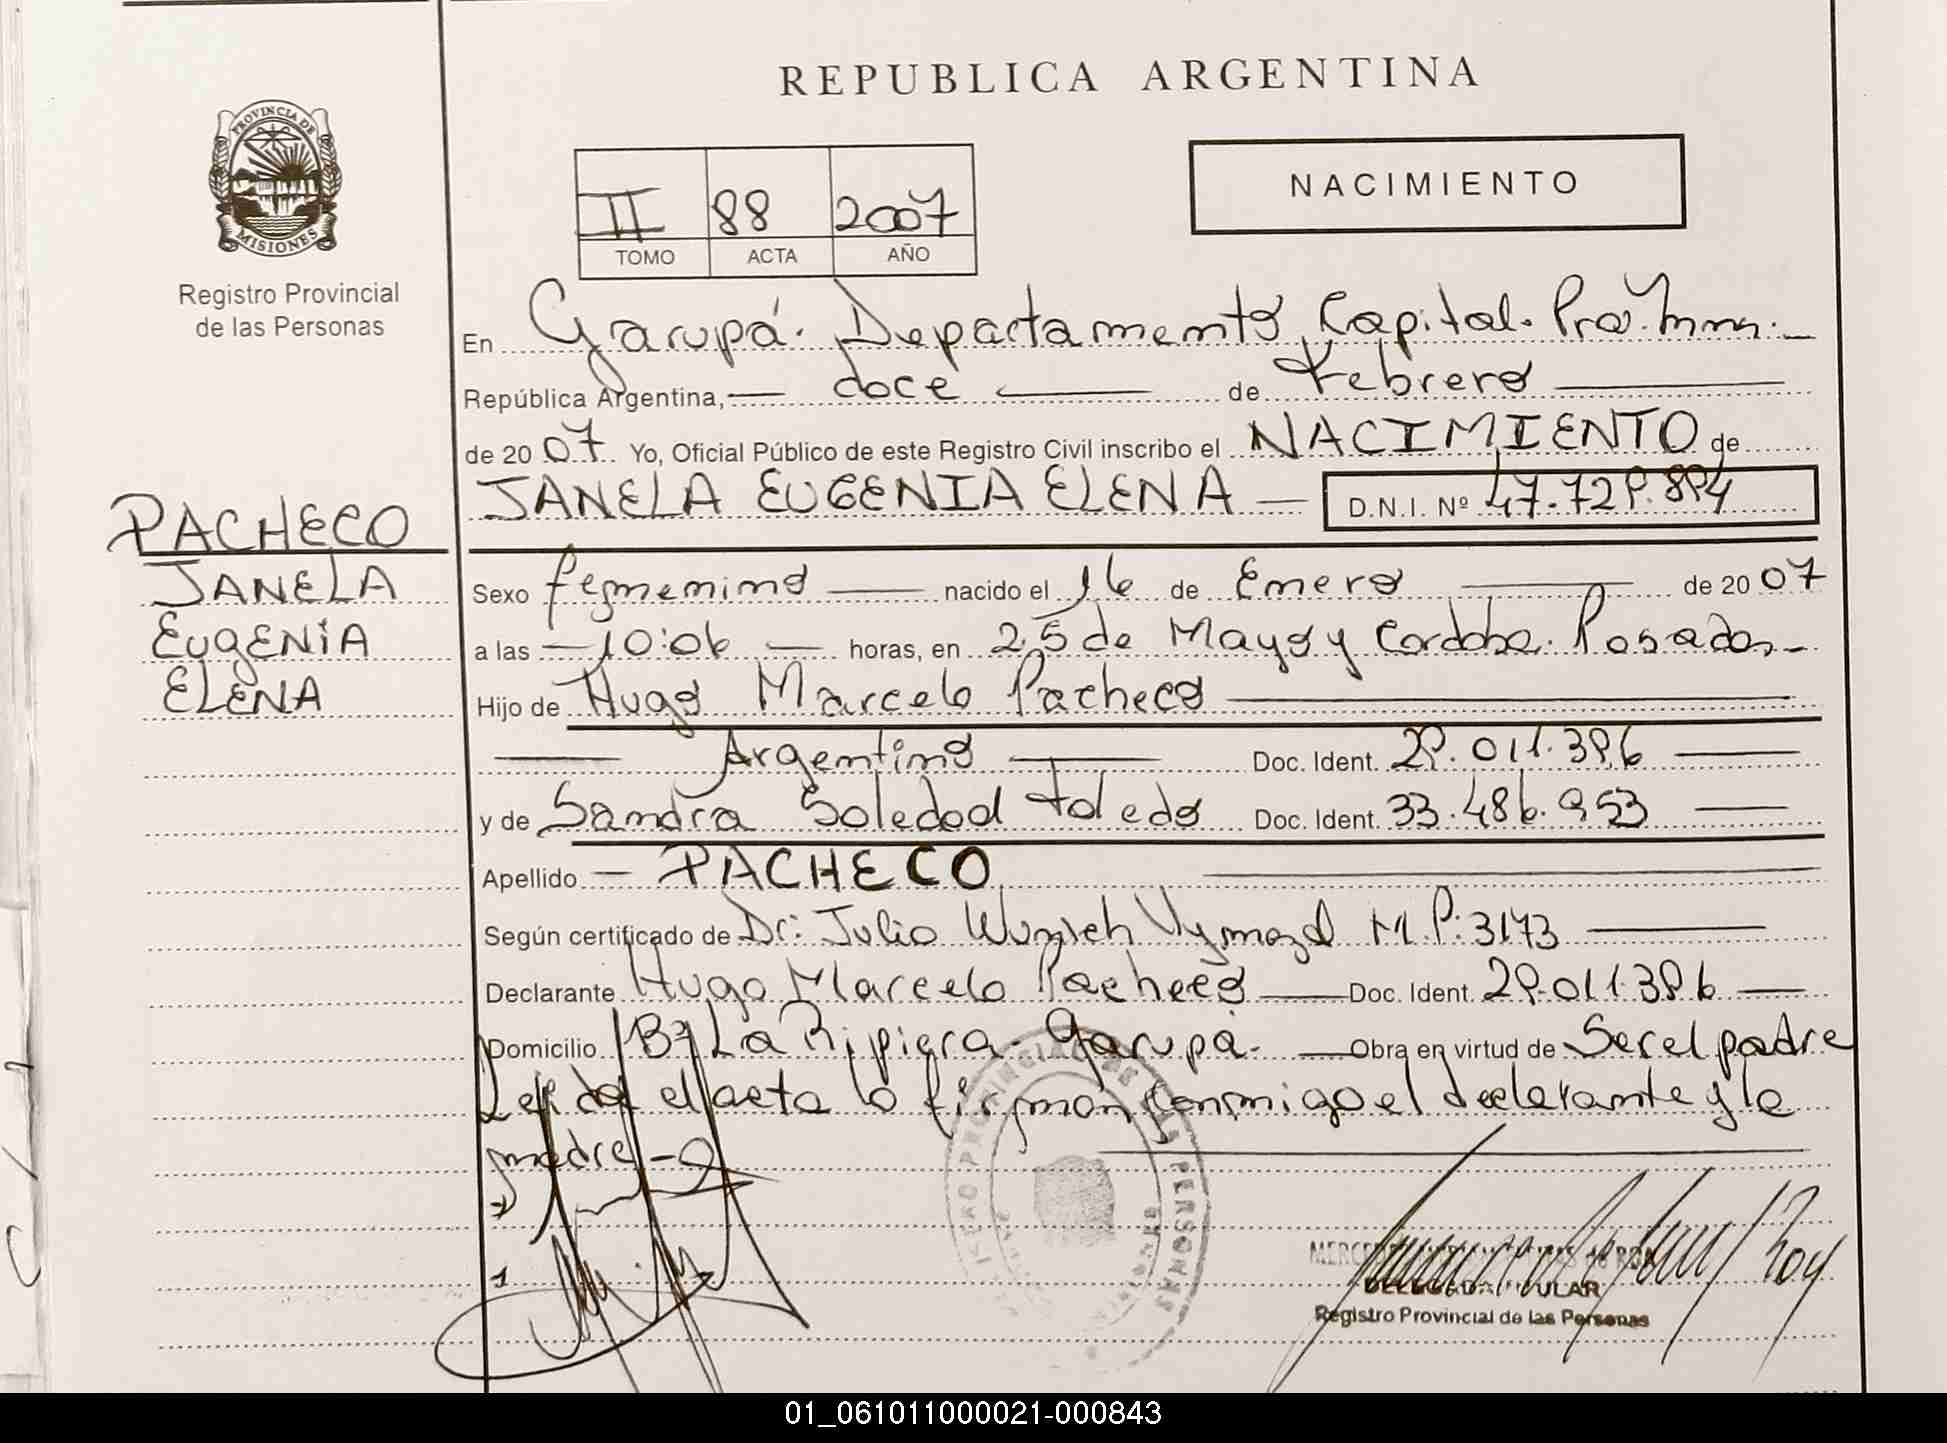 REPUBLICA ARGENTINA
PROVINCIA DE
MISIONES
Registro Provincial
de las Personas
II 88 2007
TOMO ACTA AÑO
NACIMIENTO
En Garupá. Departamento Capital.
República Argentina, doce de Febrero
de 2007 Yo, Oficial Público de este Registro Civil inscribo el NACIMIENTO de
JANELA EUGENIA ELENA D.N.I. Nº 47.729.894
PACHECO
JANELA
EUGENIA
ELENA
Sexo femenino nacido el 16 de Enero de 2007
a las 10:06 horas, en 25 de Mayo y Cordoba. Posadas
Hijo de Hugo Marcelo Pacheco
Argentino Doc. Ident. 29.011.396
y de Sandra Soledad Toledo Doc. Ident. 33.486.953
Apellido PACHECO
Según certificado de Dr: Julio M.P: 3173
Declarante Hugo Marcelo Pacheco Doc. Ident. 29.011.396
Domicilio Bº La Ripiera. Garupá. Obra en virtud de Ser el padre
Leida el acta lo firman conmigo el declarante y la
madre
Registro Provincial de las Personas
01_061011000021-000843